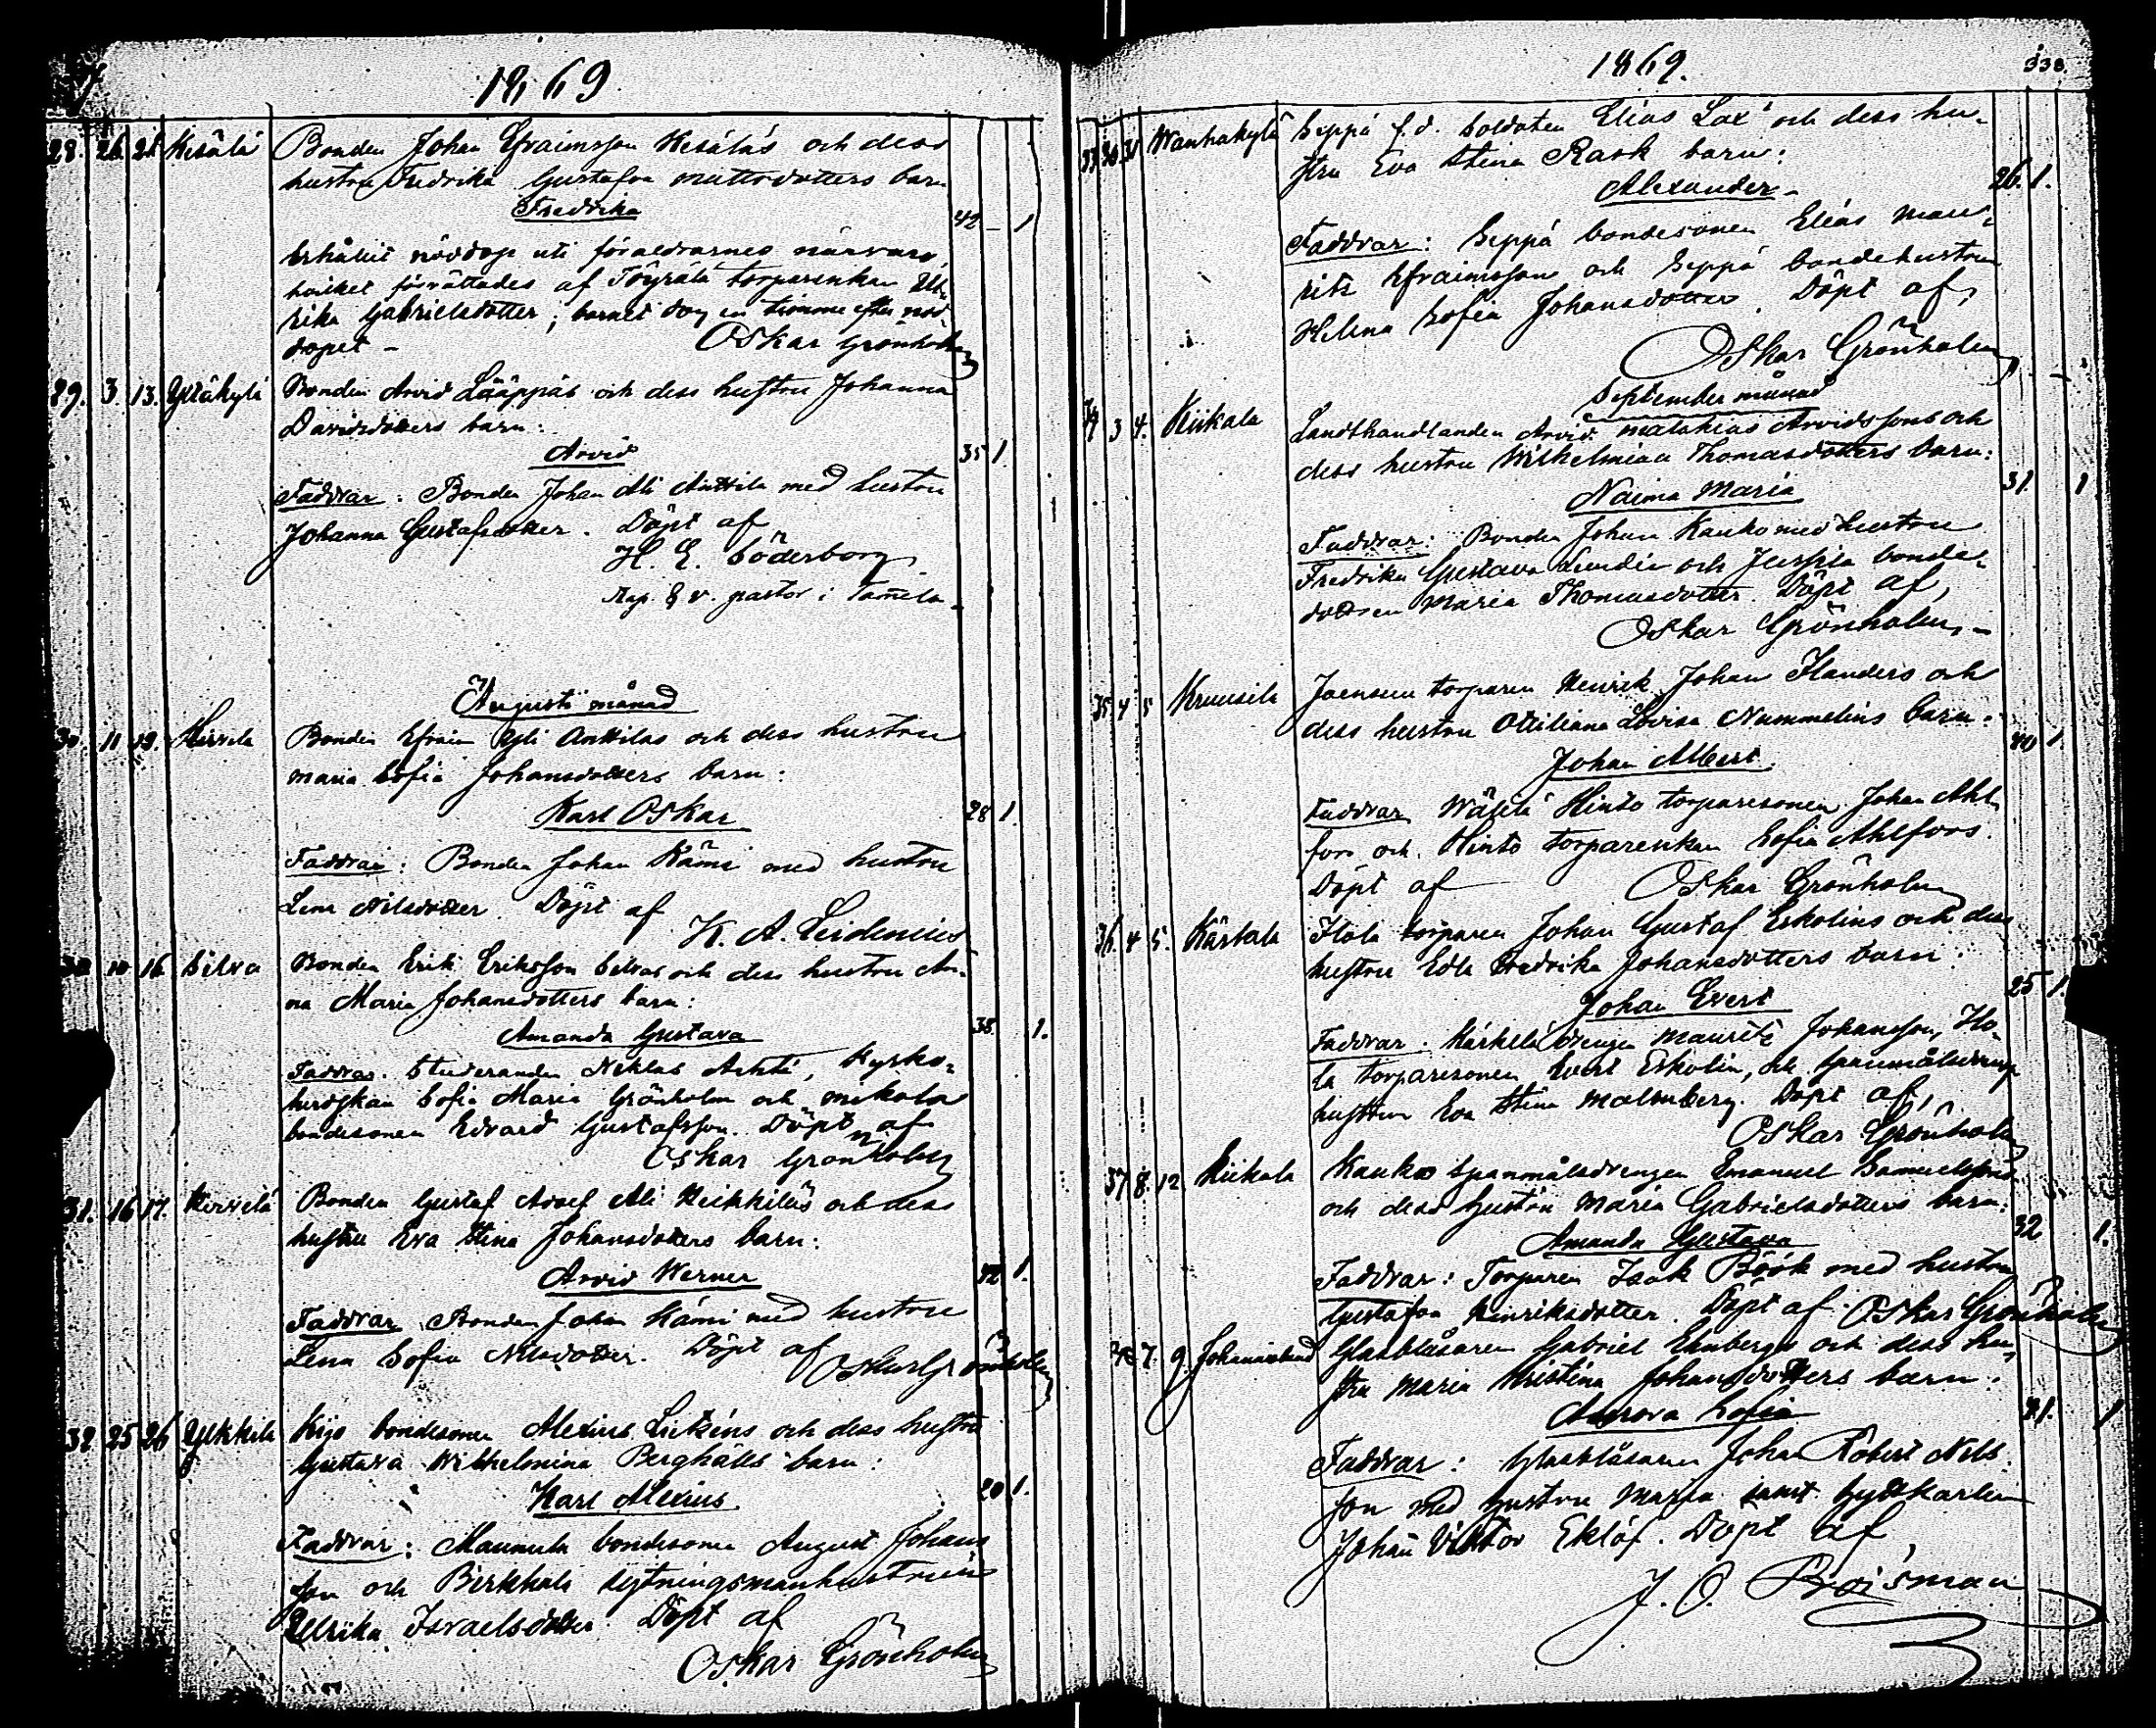 1869
28. 26. 28. Kesälä Bonden Johan Efraimsson Kesäläs och dess
hustru Fredrika Gustafva Mattsdotters barn
Fredrika
42 – 1
Erhållit nöddop uti föräldrarnes närvaro,
hvilket förrättades af Töyrälä torparenkan Ul-
rika Gabrielsdotter; barnet dog en timme efter nöd-
dopet –
Oskar Grönholm
29. 3. 13. Ylikylä Bonden Arvid Lääppäs och dess hustru Johanna
Davidsdotters barn:
Arvid
35 1.
Faddrar: Bonden Johan Ali Anttila med hustru
Johanna Gustafsdotter. Döpt af
H. E. Söderborg
Kap. & v. pastor i Tammela.
Augusti månad
30. 11 19. Hirvelä Bonden Efraim Yli Anttilas och dess hustru
Maria Sofia Johansdotters barn:
Karl Oskar
28 1.
Faddrar: Bonden Johan Kämi med hustru
Lena Nilsdotter. Döpt af
K. A. Leidenius
30 10 16 Silva Bonden Erik Eriksson Silvas och dess hustru An-
na Maria Johansdotters barn:
Amanda Gustava
38. 1.
Faddrar. Studeranden Niklas Ahti, Kyrko-
herdskan Sofia Maria Grönholm och Mikola
bondesonen Edvard Gustafsson. Döpt af
Oskar Grönholm
31. 16 17. Hirvelä Bonden Gustaf Adolf Ali Heikkiläs och dess
hustru Eva Stina Johansdotters barn:
Arvid Werner
42 1.
Faddrar Bonden Johan Kämi med hustru
Lena Sofia Nilsdotter. Döpt af Oskar Grönholm
32 25 26 Ylikkilä Kijo bondesonen Alexius Liitkins och dess hustru
Gustava Wilhelmina Berghälls barn:
Karl Alexius
20 1.
Faddrar: Maunula bondesonen August Johans-
son och Pirkkala
Ullrika Israelsdotter. Döpt af
Oskar Grönholm
1869.
338.
33 30 31 Wanhakylä Seppä f.d. Soldaten Elias Lax' och dess hu-
stru Eva Stina Rask barn:
Alexander –
26. 1.
Faddrar: Seppä bondesonen Elias Mau-
ritz Efraimsson och Seppä bondehustrun
Helena Sofia Johansdotter. Döpt af,
Oskar Grönholm
September månad
34 3 4. Kiikala Landthandlanden Arvid Malakias Arvidssons och
dess hustru Wilhelmina Thomasdotters barn:
Naima Maria
31. 1
Faddrar: Bonden Johan Kauko med hustru
Fredrika Gustava Lundén och Jussila bonde-
dottren Maria Thomasdotter. Döpt af,
Oskar Grönholm. –
35 4 5 Kruusila Joensuu torparen Henrik Johan Flanders och
dess hustru Ottiliana Lovisa Nummelins barn.
Johan Albert
40 1.
Faddrar Hinto torparesonen Johan Ahl-
fors och Hinto torparenkan Sofia Ahlfors.
Döpt af Oskar Grönholm
36. 4 5. Kärkelä Flola torparen Johan Gustaf Eskolins och dess
hustru Edla Fredrika Johansdotters barn.
Johan Evert
25 1.
Faddrar. Kärkelä drengen Mauritz Johansson, Flo-
la torparesonen Evert Eskolin, och
hustrun Eva Stina Malmberg. Döpt af,
Oskar Grönholm
37 8. 12 Kiikala Kauko Spanmålsdrengen Emanuel Samuelssons
och dess hustru Maria Gabrielsdotters barn:
Amanda Gustava
32 1.
Faddrar: Torparen Isak Böök med hustru
Gustafva Henriksdotter. Döpt af Oskar Grönholm
38 7. 9. Johannislund Glasblåsaren Gabriel Ehnbergs och dess hu-
stru Maria Kristina Johansdotters barn.
Aurora Sofia
31. 1
Faddrar: Glasblåsaren Johan Robert Nils-
son med hustru Maria samt hyttkarlen
Johan Viktor Eklöf. Döpt af,
J. O. Roisman